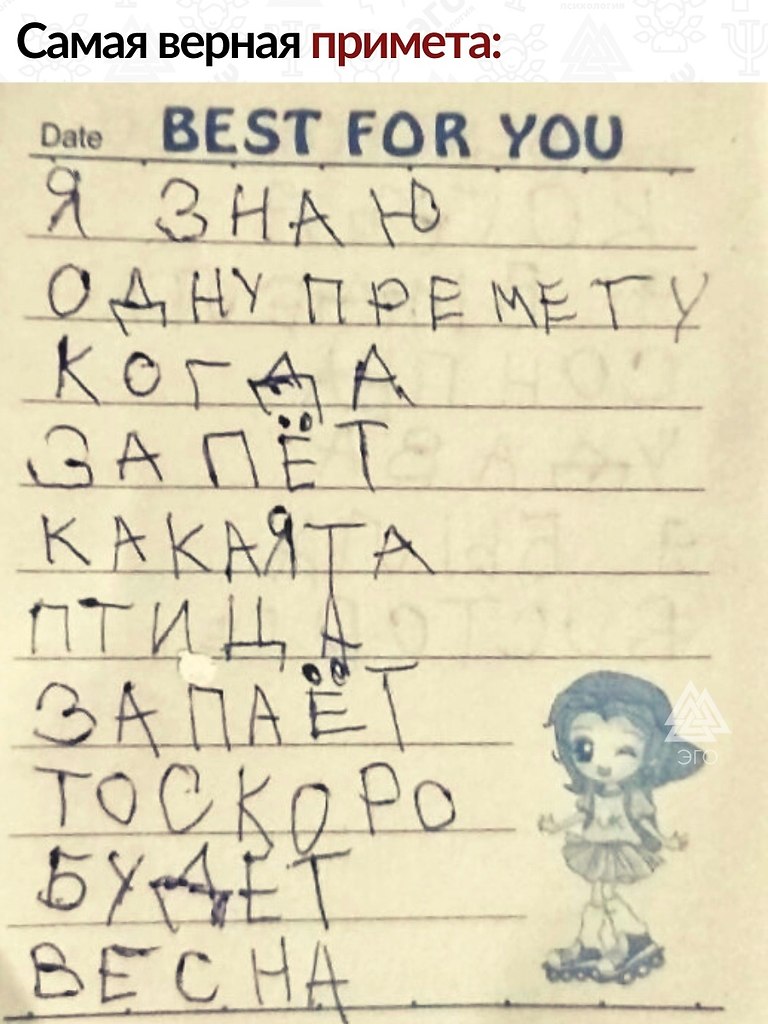 Самая верная примета:
Date BEST FOR YOU
Я ЗНАЮ
ОДНУ ПРЕМЕТУ
КОГДА
ЗАПЁТ
КАКАЯТА
ПТИЦА
ЗАПАЁТ
ТОСКОРО
БУДЕТ
ВЕСНА
ЭГО